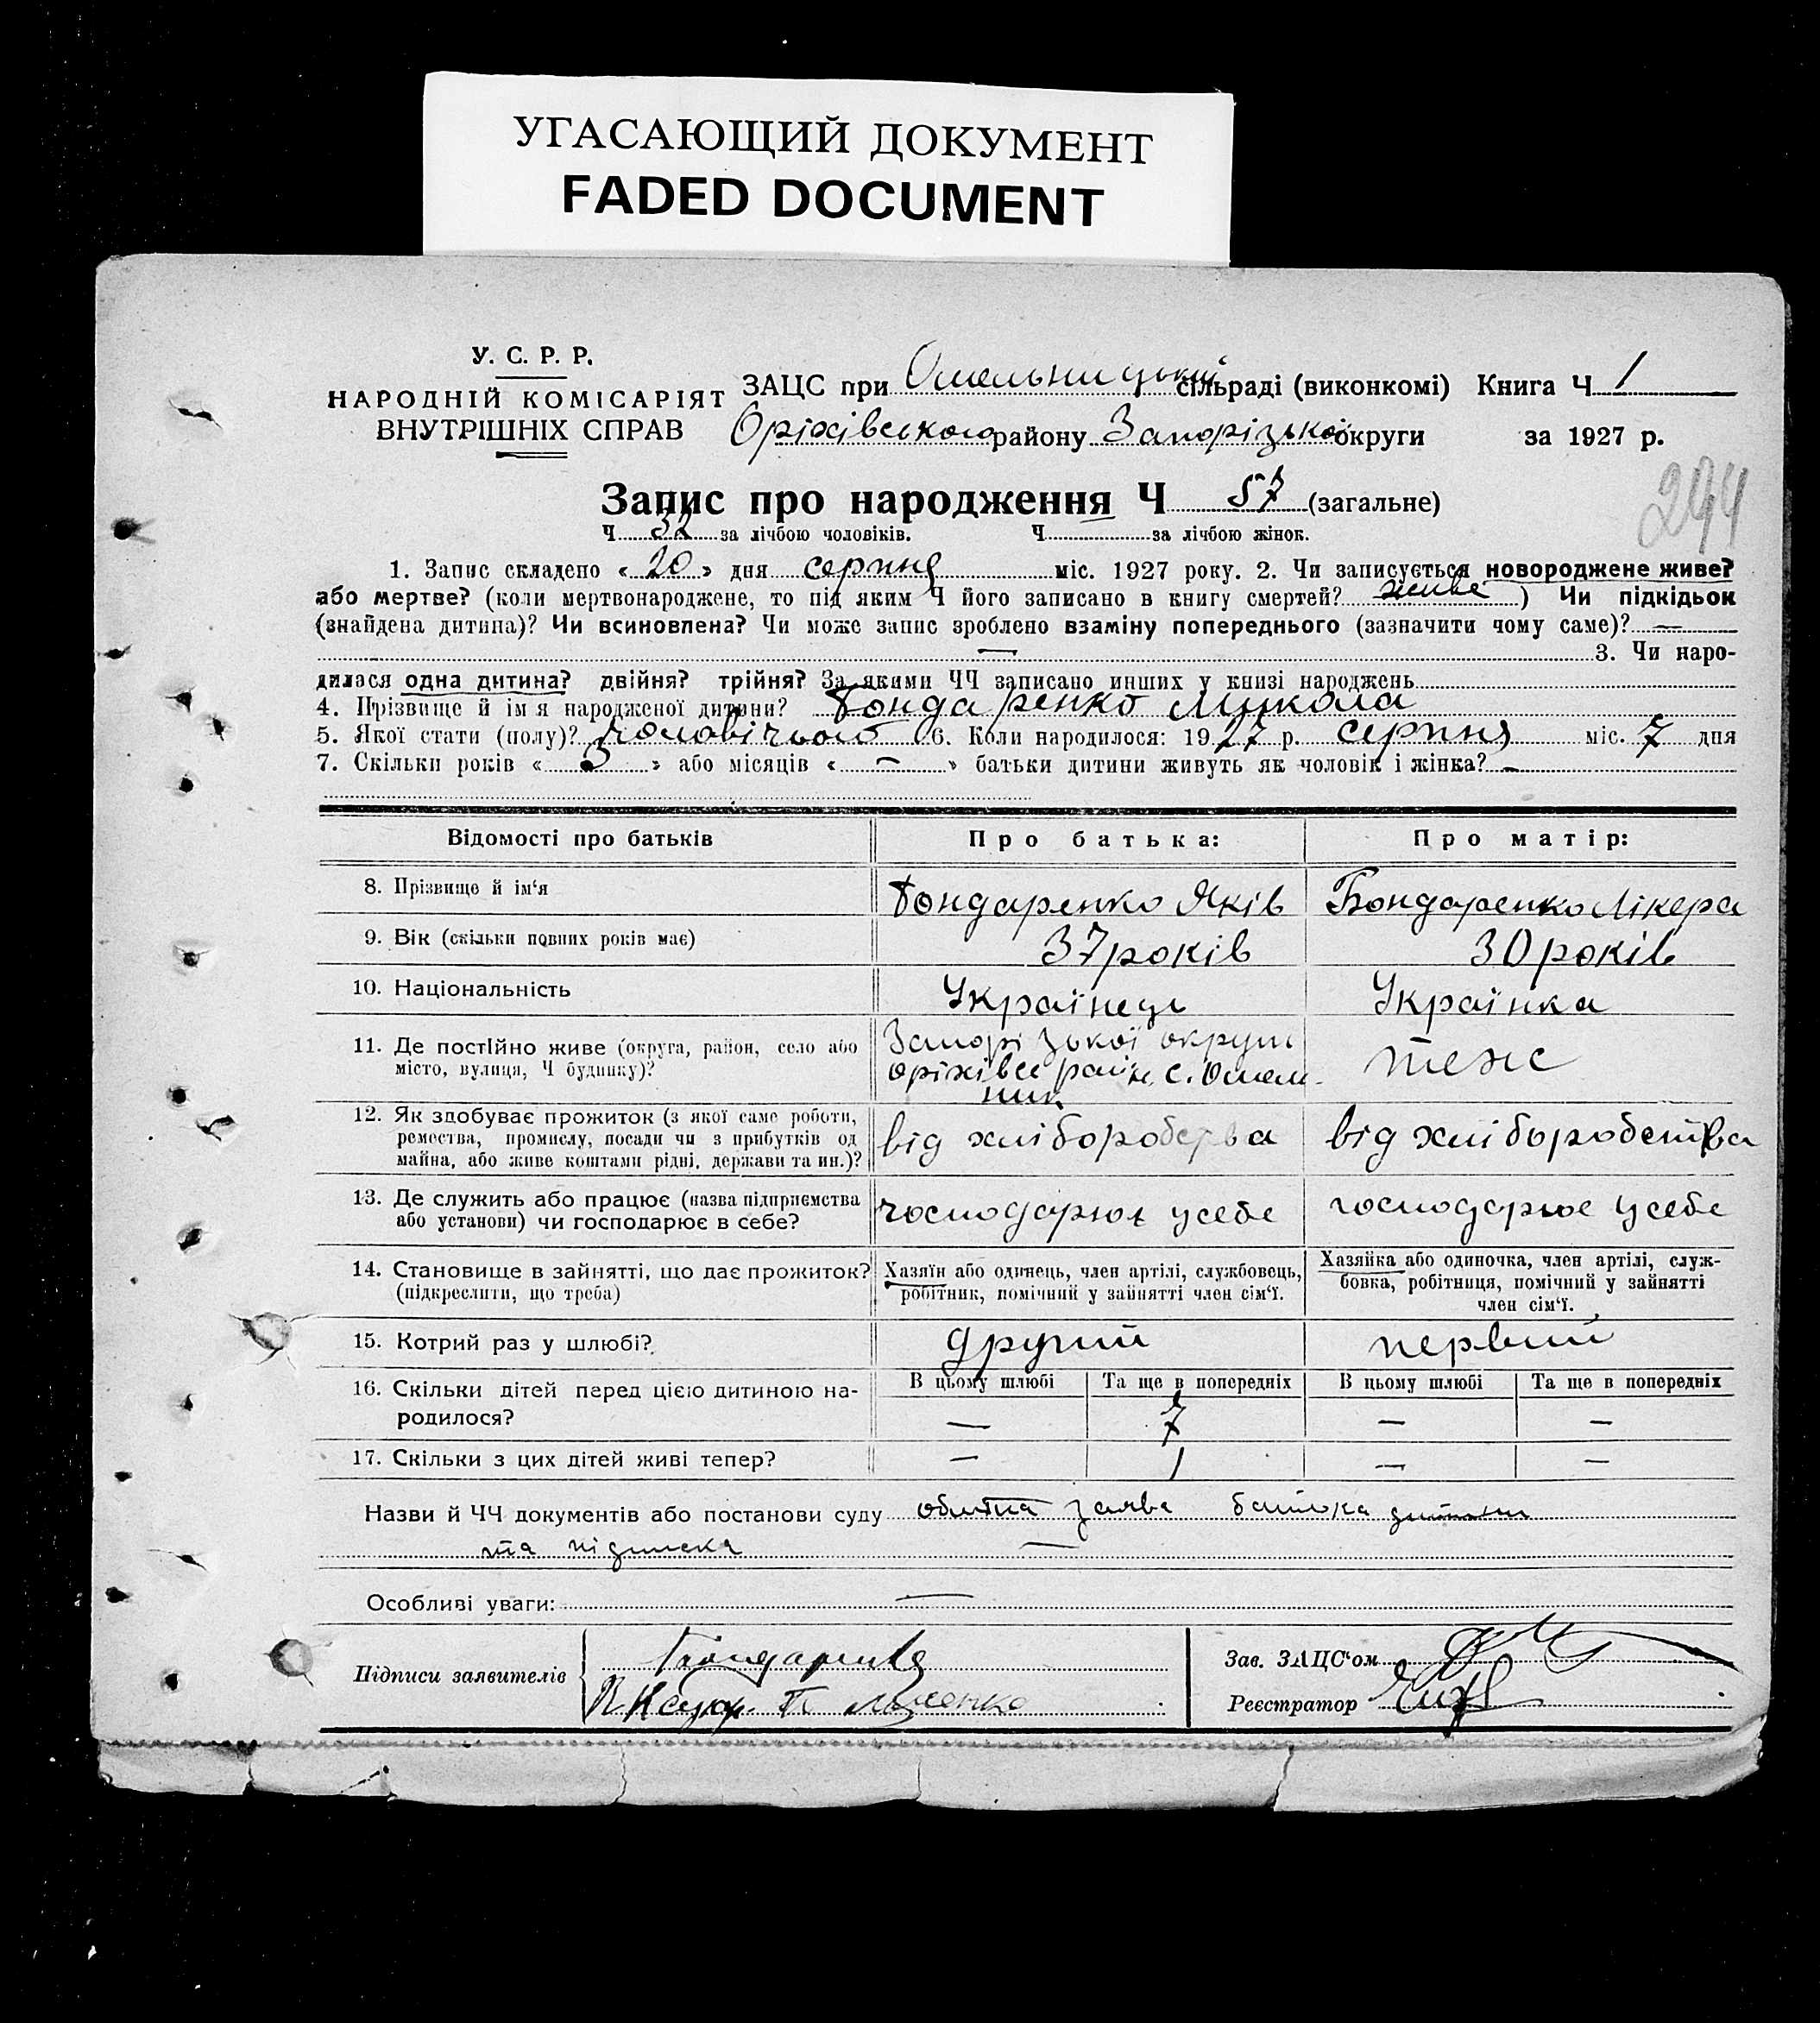 УГАСАЮЩИЙ ДОКУМЕНТ
FADED DOCUMENT
У. С. Р. Р.
НАРОДНІЙ КОМІСАРІЯТ
ВНУТРІШНІХ СПРАВ
ЗАЦС при Омельницькій сільраді (виконкомі) Книга Ч 1
Оріхівського району Запорізької округи за 1927 р.
294
Запис про народження Ч 57 (загальне)
Ч 32 за лічбою чоловіків. Ч за лічбою жінок.
1. Запис складено « 20 » дня серпня міс. 1927 року. 2. Чи записується новороджене живе?
або мертве? (коли мертвонароджене, то під яким Ч його записано в книгу смертей? живе ) Чи підкідьок
(знайдена дитина)? Чи всиновлена? Чи може запис зроблено взаміну попереднього (зазначити чому саме)? —
— 3. Чи наро-
дилася одна дитина? двійня? трійня? За якими ЧЧ записано инших у книзі народжень
4. Прізвище й ім'я народженої дитини? Бондаренко Микола
5. Якої стати (полу)? чоловічьої 6. Коли народилося: 1927 р. серпня міс. 7 дня
7. Скільки років « 3 » або місяців « — » батьки дитини живуть як чоловік і жінка? —
Відомості про батьків Про батька: Про матір:
8. Прізвище й ім'я Бондаренко Яків Бондаренко Лікера
9. Вік (скільки повних років має) 37 років 30 років
10. Національність Українець Українка
11. Де постійно живе (округа, район, село або місто, вулиця, Ч будинку)? Запорізької округи
Оріхівсь район, с. Омель-
ник
теж
12. Як здобуває прожиток (з якої саме роботи,
ремества, промислу, посади чи з прибутків од
майна, або живе коштами рідні, держави та ин.)?
від хліборобства від хліборобства
13. Де служить або працює (назва підприємства
або установи) чи господарює в себе?
господарює усебе господарює усебе
14. Становище в зайнятті, що дає прожиток?
(підкреслити, що треба)
Хазяїн або одинець, член артілі, службовець,
робітник, помічний у зайнятті член сім'ї.
Хазяйка або одиночка, член артілі, служ-
бовка, робітниця, помічний у зайнятті
член сім'ї.
15. Котрий раз у шлюбі? другий первий
16. Скільки дітей перед цією дитиною на-
родилося?
В цьому шлюбі Та ще в попередніх В цьому шлюбі Та ще в попередніх
— 7 — —
17. Скільки з цих дітей живі тепер? — 1 — —
Назви й ЧЧ документів або постанови суду заява батька дитини
та підписка —
Особливі уваги: —
Підписи заявителів Бондаренко
Зав. ЗАЦС'ом
Реєстратор